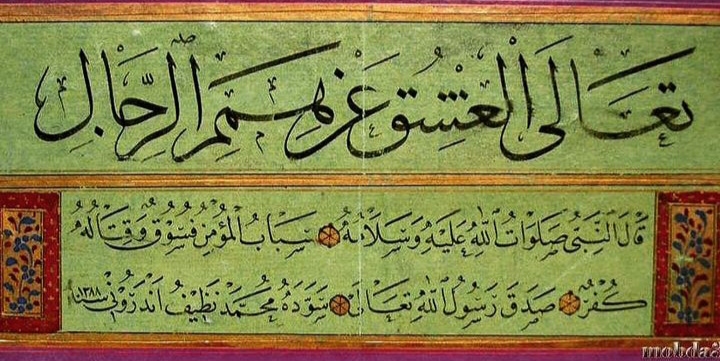 تَعَالَى الْعِشْقُ عَنْ هِمَمِ الرِّجَالِ
قَالَ النَّبِيُّ صَلَوَاتُ اللهِ عَلَيْهِ وَسَلَامُهُ سِبَابُ الْمُؤْمِنِ فُسُوقٌ وَقِتَالُهُ
كُفْرٌ صَدَقَ رَسُولُ اللهِ تَعَالَى سَوَّدَهُ مُحَمَّدْ نَظِيفُ اَنْدَرُونِي سنة ١٣٨٨
mobda3